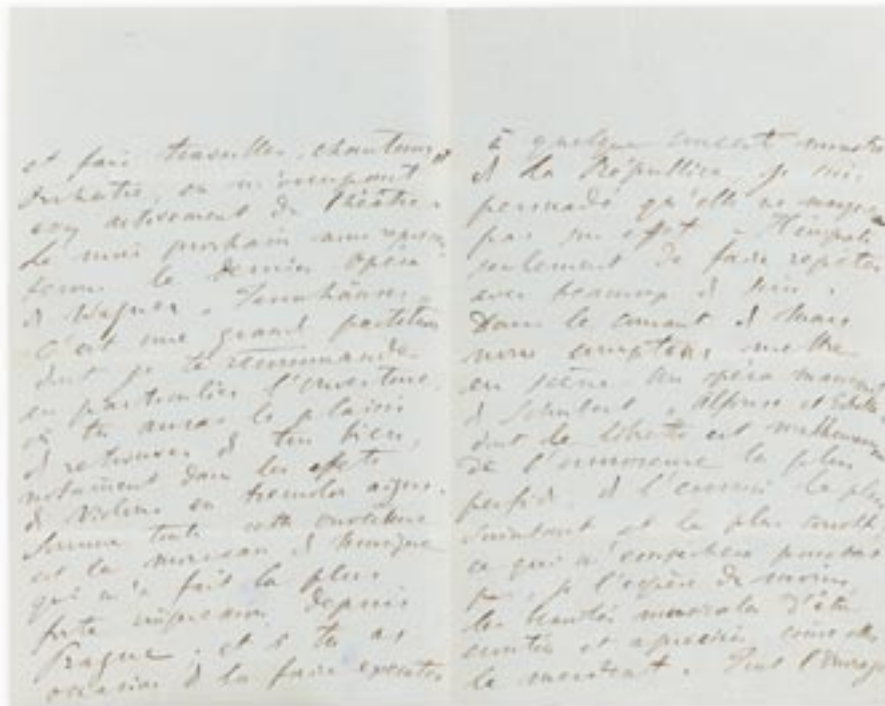 et fais travailler, chanteurs et
Orchestre, en m'occupant
activement du Théâtre.
Le mois prochain nous
le dernier opéra
de Wagner, Tannhäuser.
C'est une grande partition
dont je te recommande
en particulier l'ouverture,
où tu auras le plaisir
de retrouver de ton bien,
notamment dans les effets
de violons en tremolos aigus.
Somme toute cette ouverture
est le morceau de musique
qui m'a fait la plus
forte impression depuis
Prague; et si tu as
occasion de la faire exécuter
à quelque concert monstre
de la République, je suis
persuadé qu'elle ne manquera
pas son effet. N'
seulement de faire répéter
avec beaucoup de soin.
Dans le courant de Mars
nous comptons mettre
en scène un opéra manuscrit
de Schubert, Alfonso et Estrella
dont le libretto est malheureusement
de l'innocence la plus
de l'ennui le plus
et le plus
ce qui n'empêchera pourtant
pas, je l'espère du moins
les beautés musicales d'être
senties et appréciées comme elles
le méritent. Tout l'ouvrage